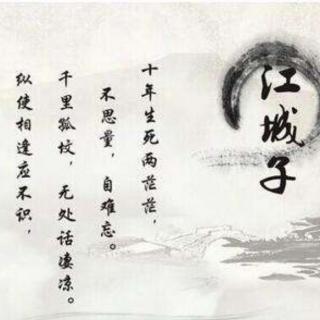 江城子
十年生死两茫茫，
不思量，自难忘。
千里孤坟，无处话凄凉。
纵使相逢应不识，